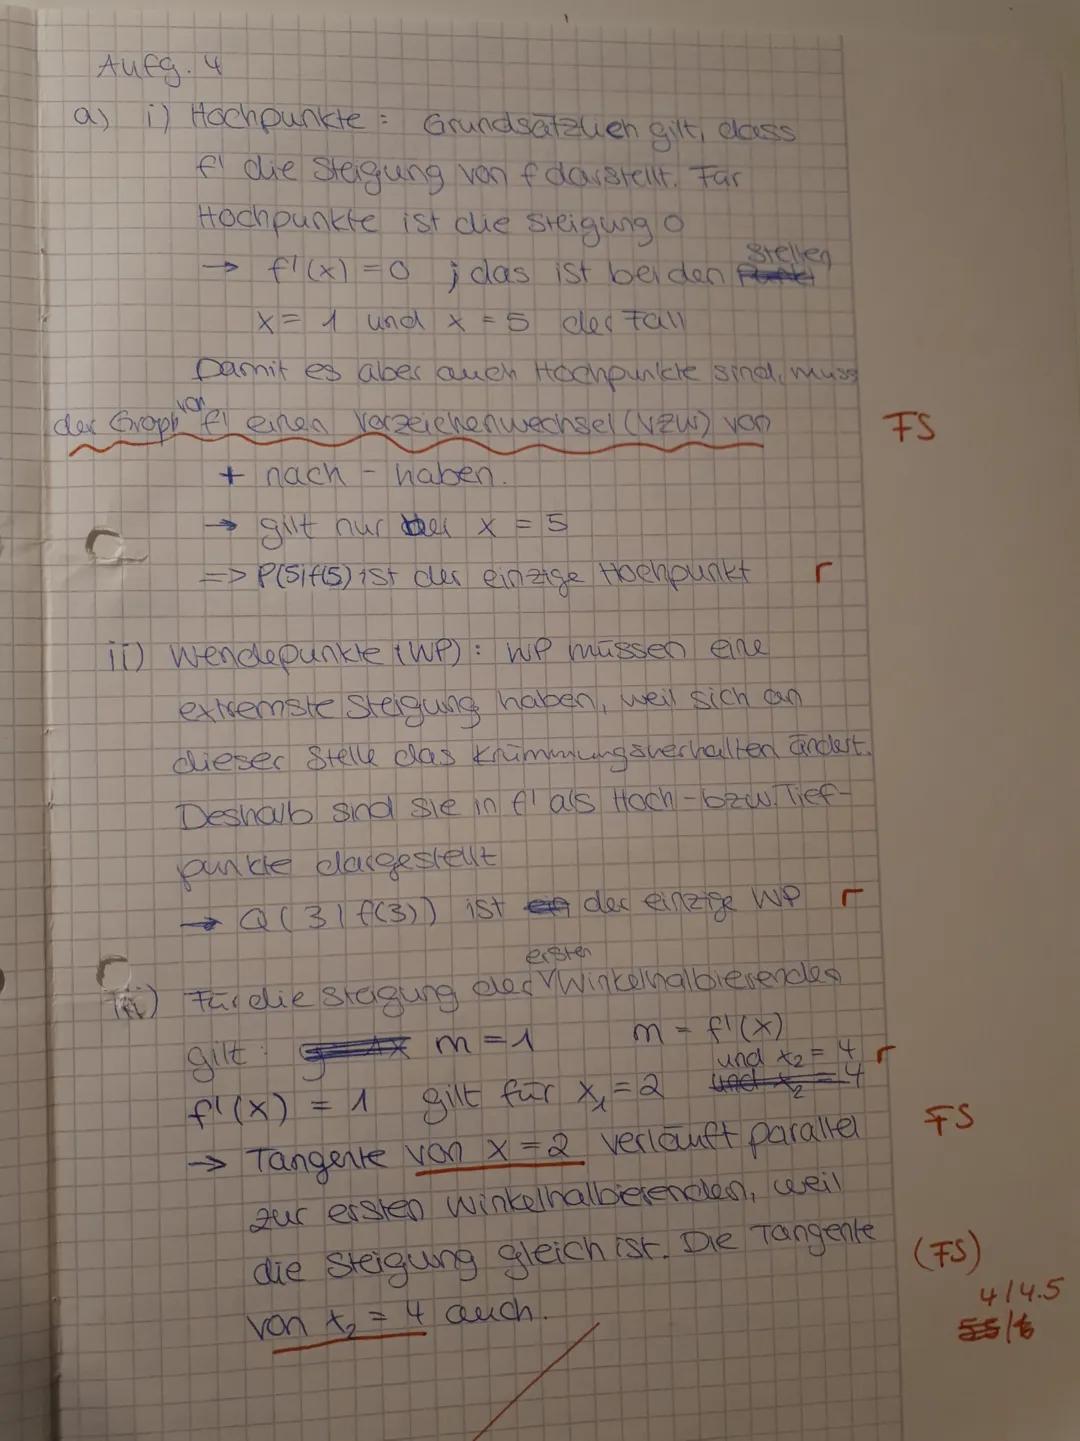 Aufg. 4
a) i) Hochpunkte: Grundsätzlich gilt, dass
f' die Steigung von f darstellt. Für
Hochpunkte ist die Steigung 0
→ f'(x) = 0 ; das ist bei den Stellen
x = 1 und x = 5 der Fall
Damit es aber auch Hochpunkte sind, muss
der Graph von f' einen Vorzeichenwechsel (VZW) von
FS
+ nach - haben.
→ gilt nur bei x = 5
=> P(5|f(5)) ist der einzige Hochpunkt r
ii) Wendepunkte (WP): WP müssen eine
extremste Steigung haben, weil sich an
dieser Stelle das Krümmungsverhalten ändert.
Deshalb sind sie in f' als Hoch- bzw. Tief-
punkte dargestellt
→ Q(3|f(3)) ist der einzige WP r
iii) Für die Steigung der ersten Winkelhalbierenden
gilt: m = 1 m = f'(x)
f'(x) = 1 gilt für x₁ = 2 und x₂ = 4 r
FS
→ Tangente von x = 2 verläuft parallel
zur ersten Winkelhalbierenden, weil
die Steigung gleich ist. Die Tangente
(FS)
von x₂ = 4 auch.
4/4.5